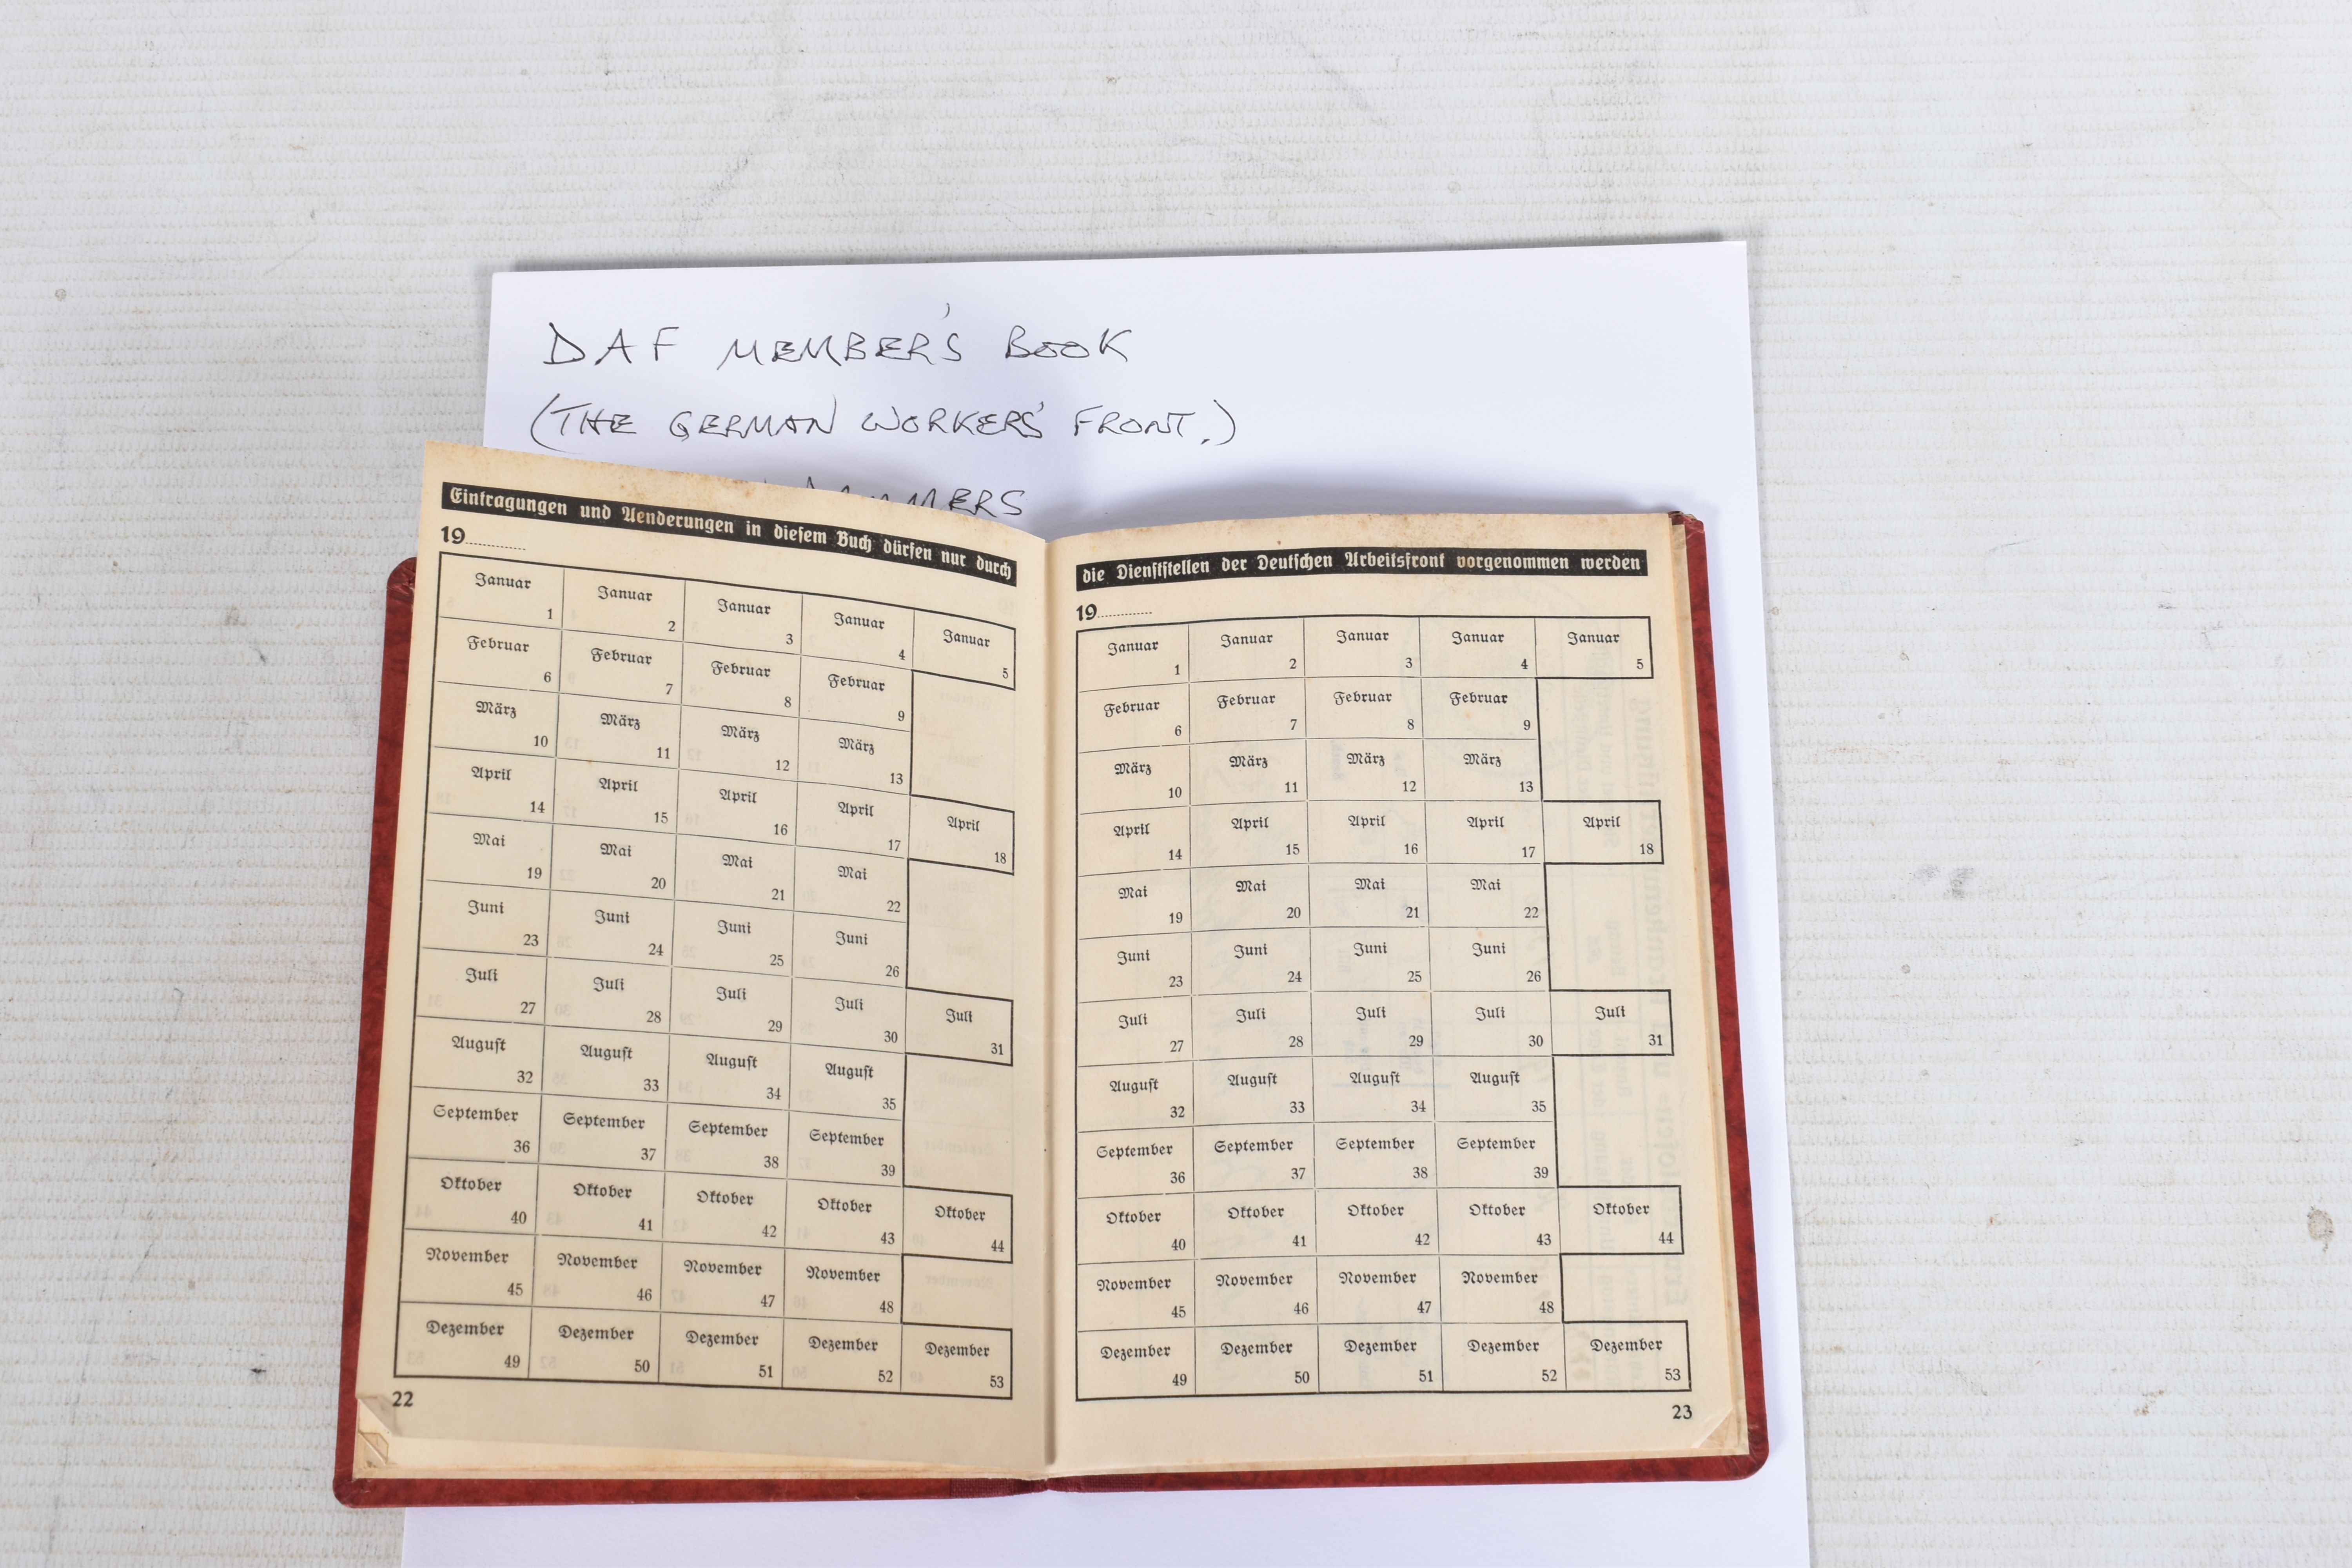 DAF MEMBER'S BOOK
(THE GERMAN WORKERS' FRONT.)
Eintragungen und Aenderungen in diesem Buch dürfen nur durch
19
Januar 1 Januar 2 Januar 3 Januar 4 Januar 5
Februar 6 Februar 7 Februar 8 Februar 9
März 10 März 11 März 12 März 13
April 14 April 15 April 16 April 17 April 18
Mai 19 Mai 20 Mai 21 Mai 22
Juni 23 Juni 24 Juni 25 Juni 26
Juli 27 Juli 28 Juli 29 Juli 30 Juli 31
August 32 August 33 August 34 August 35
September 36 September 37 September 38 September 39
Oktober 40 Oktober 41 Oktober 42 Oktober 43 Oktober 44
November 45 November 46 November 47 November 48
Dezember 49 Dezember 50 Dezember 51 Dezember 52 Dezember 53
22
die Dienststellen der Deutschen Arbeitsfront vorgenommen werden
19
Januar 1 Januar 2 Januar 3 Januar 4 Januar 5
Februar 6 Februar 7 Februar 8 Februar 9
März 10 März 11 März 12 März 13
April 14 April 15 April 16 April 17 April 18
Mai 19 Mai 20 Mai 21 Mai 22
Juni 23 Juni 24 Juni 25 Juni 26
Juli 27 Juli 28 Juli 29 Juli 30 Juli 31
August 32 August 33 August 34 August 35
September 36 September 37 September 38 September 39
Oktober 40 Oktober 41 Oktober 42 Oktober 43 Oktober 44
November 45 November 46 November 47 November 48
Dezember 49 Dezember 50 Dezember 51 Dezember 52 Dezember 53
23